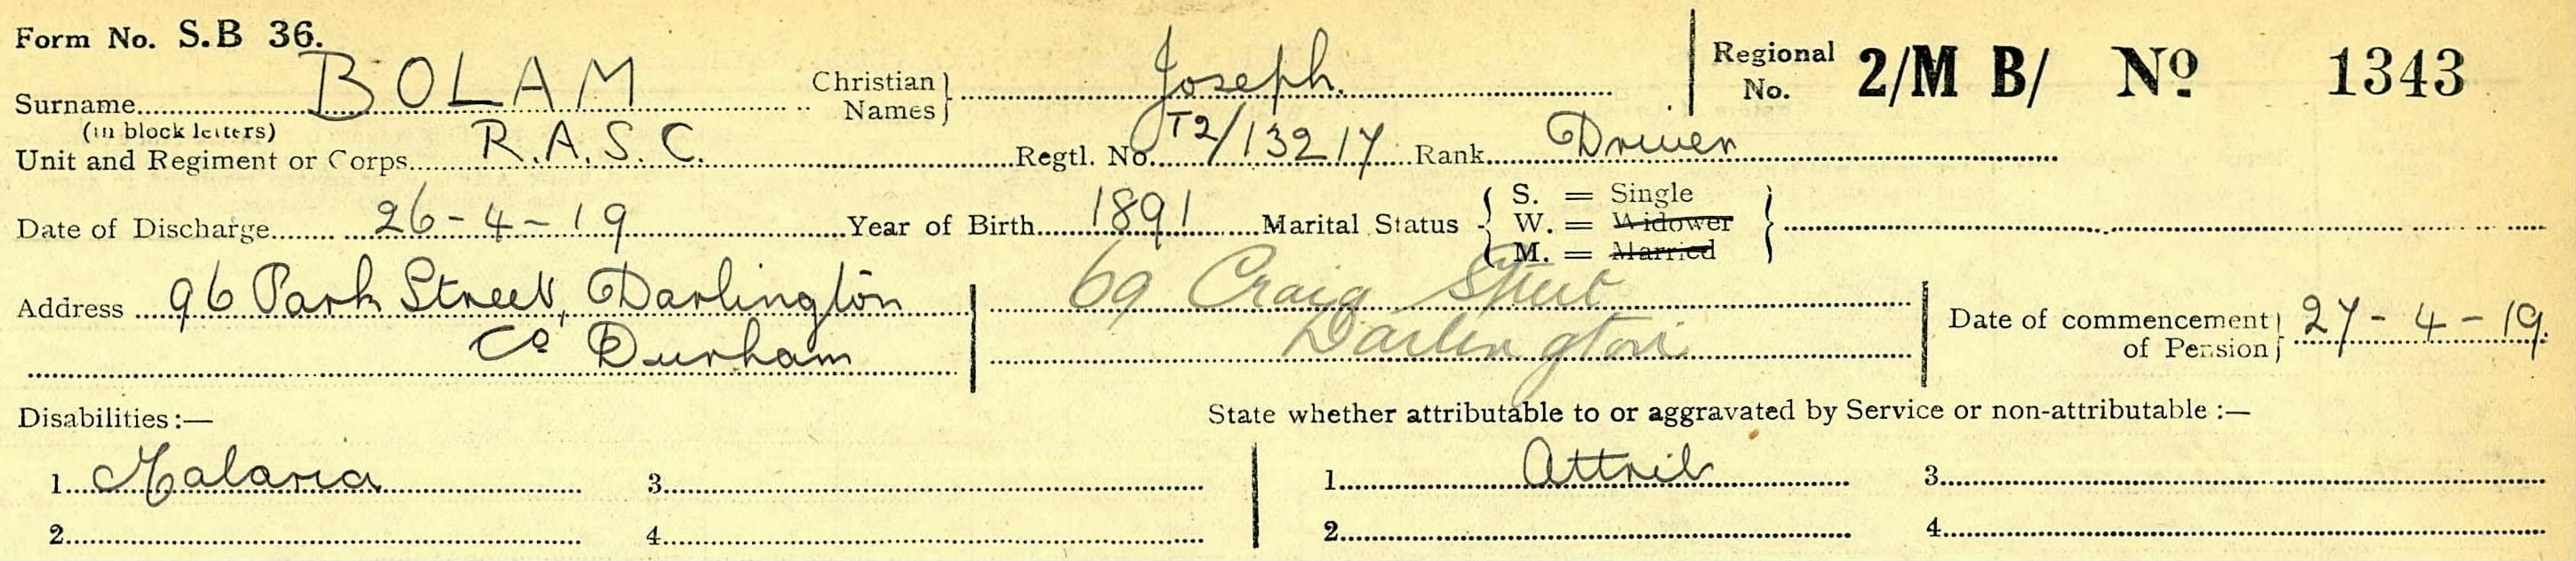 Form No. S.B 36.
Surname BOLAM Christian Names Joseph. Regional No. 2/M B/ No 1343
(in block letters)
Unit and Regiment or Corps R.A.S.C. Regtl. No. T2/13217 Rank Driver
Date of Discharge 26-4-19 Year of Birth 1891 Marital Status { S. = Single
W. = Widower
M. = Married }
Address 96 Park Street, Darlington 69 Craig Street Date of commencement of Pension 27-4-19.
Co Durham Darlington
Disabilities:— State whether attributable to or aggravated by Service or non-attributable :—
1 Malaria 3 1 Attrib 3
2 4 2 4